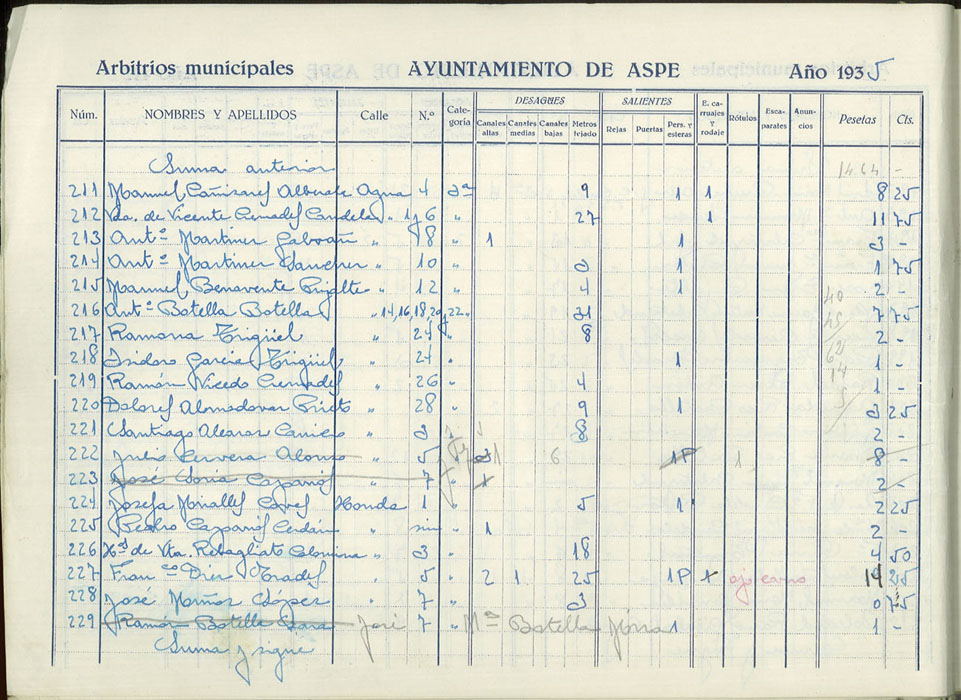 Arbitrios municipales AYUNTAMIENTO DE ASPE Año 1935
Núm. NOMBRES Y APELLIDOS Calle N.º Categoría DESAGÜES Canales altas Canales medias Canales bajas Metros tejado SALIENTES Rejas Puertas Pers. y esteras E. carruajes y rodaje Rótulos Escaparates Anuncios Pesetas Cts.
Suma anterior 1464 -
211 Manuel Cañizares Agua 4 2ª 9 1 1 8 25
212 Vda. de Vicente Cremades Candela " 1 y 6 " 27 1 11 75
213 Antº Martinez " 8 " 1 1 3 -
214 Antº Martinez " 10 " 3 1 1 75
215 Manuel Benavente " 12 " 4 1 2 -
216 Antº Botella Botella " 14, 16, 18, 20 y 22 " 31 7 75
217 Ramona Trigüel " 24 " 8 2 -
218 Isidoro Garcia Trigüel " 24 " 1 1 -
219 Ramón Vicedo Cremades " 26 " 4 1 -
220 Dolores Almodovar Prieto " 28 " 9 1 3 25
221 Santiago Alcaraz " 3 " 8 2 -
222 Julio Cervera Alonso " 5 " 3 1 6 1P 1 8 -
223 José Soria Caparrós " 7 " 1 2 -
224 Josefa Miralles Honda 1 " 5 1 2 25
225 Pedro Caparrós Cerdán " sin " 1 2 -
226 Hºs de Vta. Rebagliato Colomina " 3 " 18 4 50
227 Franco Diez Prades " 5 " 2 1 25 1P 14 25
228 José Muñoz López " 7 " 3 0 75
229 Ramón Botella José 7 " Mª Botella 1 1 -
Suma y sigue